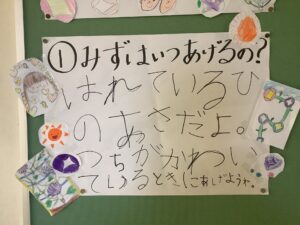 ①みずはいつあげるの?
はれているひ
のあさだよ。
つちがかわい
ているときにあげようね。